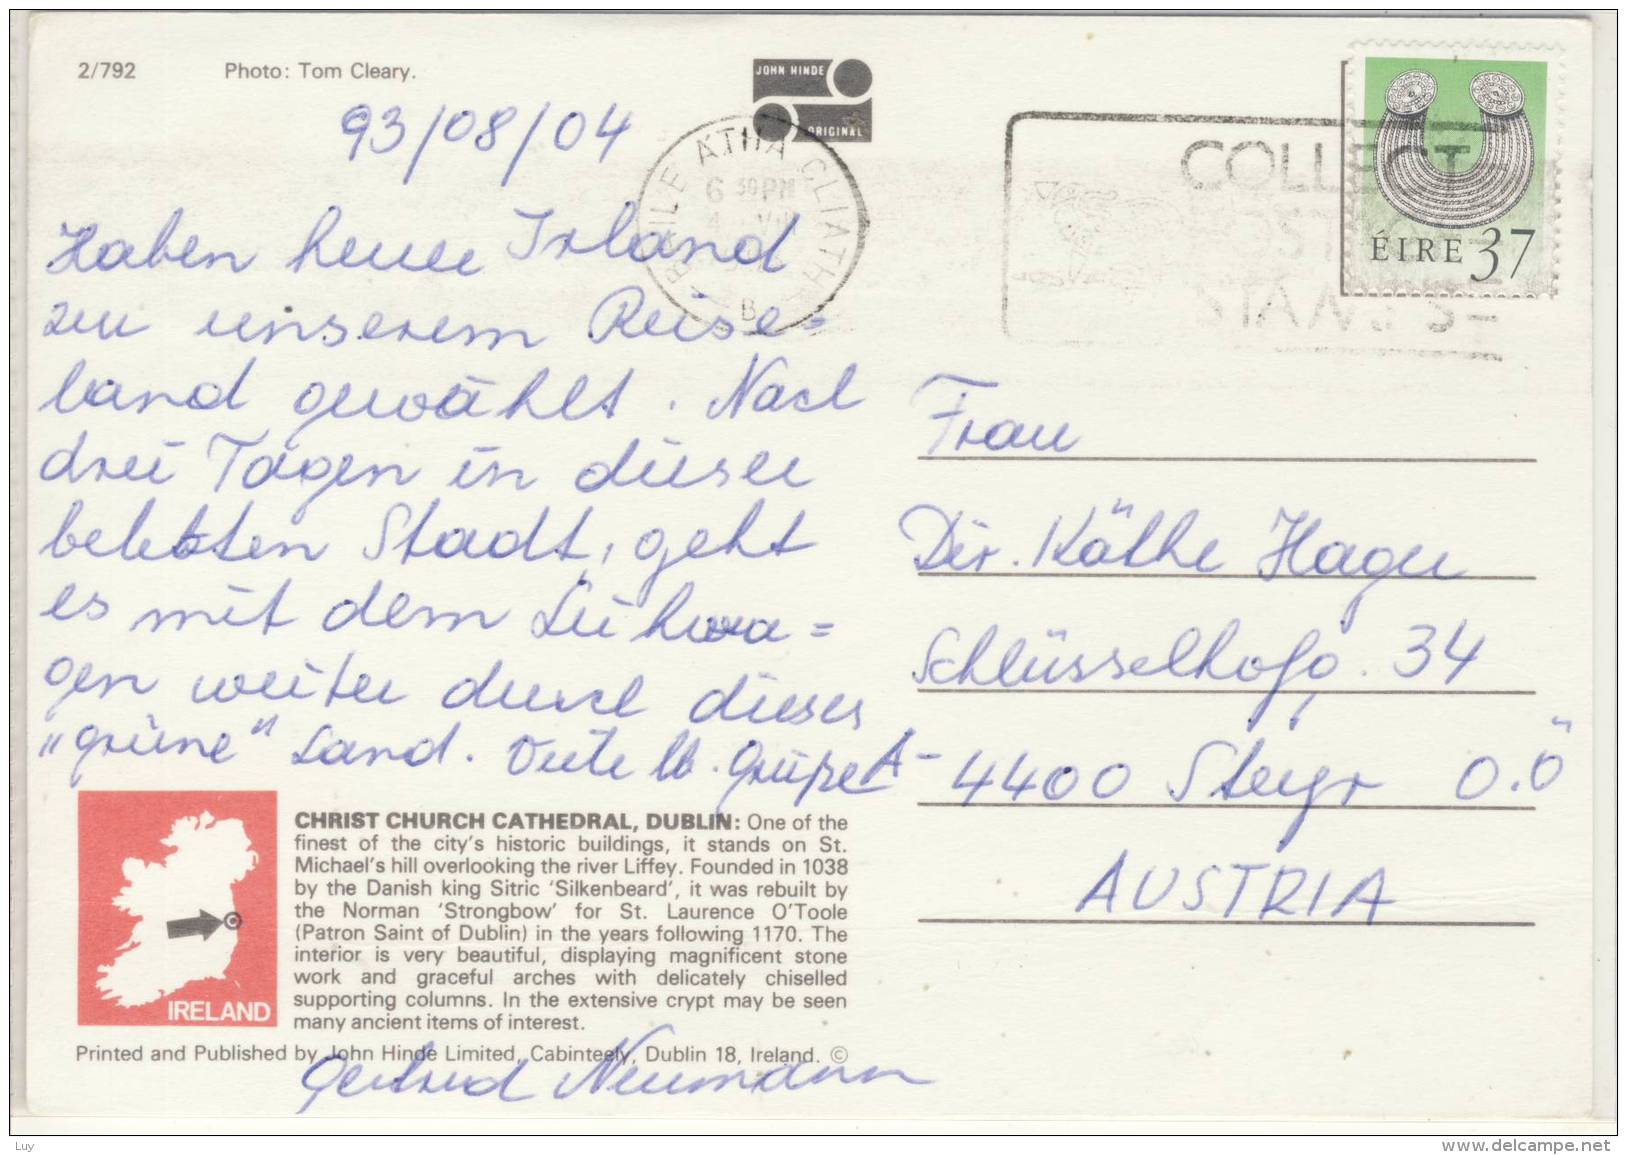 2/792
Photo: Tom Cleary.
JOHN HINDE
ORIGINAL
93/08/04
BAILE ÁTHA CLIATH
6 30PM
B
COLLECT
STAMPS
ÉIRE 37
Haben heuer Irland
zu unserem Reise=
land gewählt. Nach
drei Tagen in dieser
belebten Stadt, geht
es mit dem Leihwa=
gen weiter durch dieses
„grüne" Land. Viele lb. Grüße
Frau
Dir. Käthe Hager
Schlüsselhofg. 34
A-4400 Steyr O.Ö
AUSTRIA
IRELAND
CHRIST CHURCH CATHEDRAL, DUBLIN: One of the
finest of the city's historic buildings, it stands on St.
Michael's hill overlooking the river Liffey. Founded in 1038
by the Danish king Sitric 'Silkenbeard', it was rebuilt by
the Norman 'Strongbow' for St. Laurence O'Toole
(Patron Saint of Dublin) in the years following 1170. The
interior is very beautiful, displaying magnificent stone
work and graceful arches with delicately chiselled
supporting columns. In the extensive crypt may be seen
many ancient items of interest.
Printed and Published by John Hinde Limited, Cabinteely, Dublin 18, Ireland. ©
Gertrud Neumann
Luy
www.delcampe.net